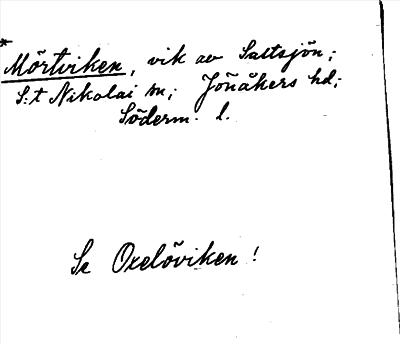 *
Mörtviken, vik av Saltsjön;
S:t Nikolai sn; Jönåkers hd;
Söderm. l.
Se Oxelöviken!